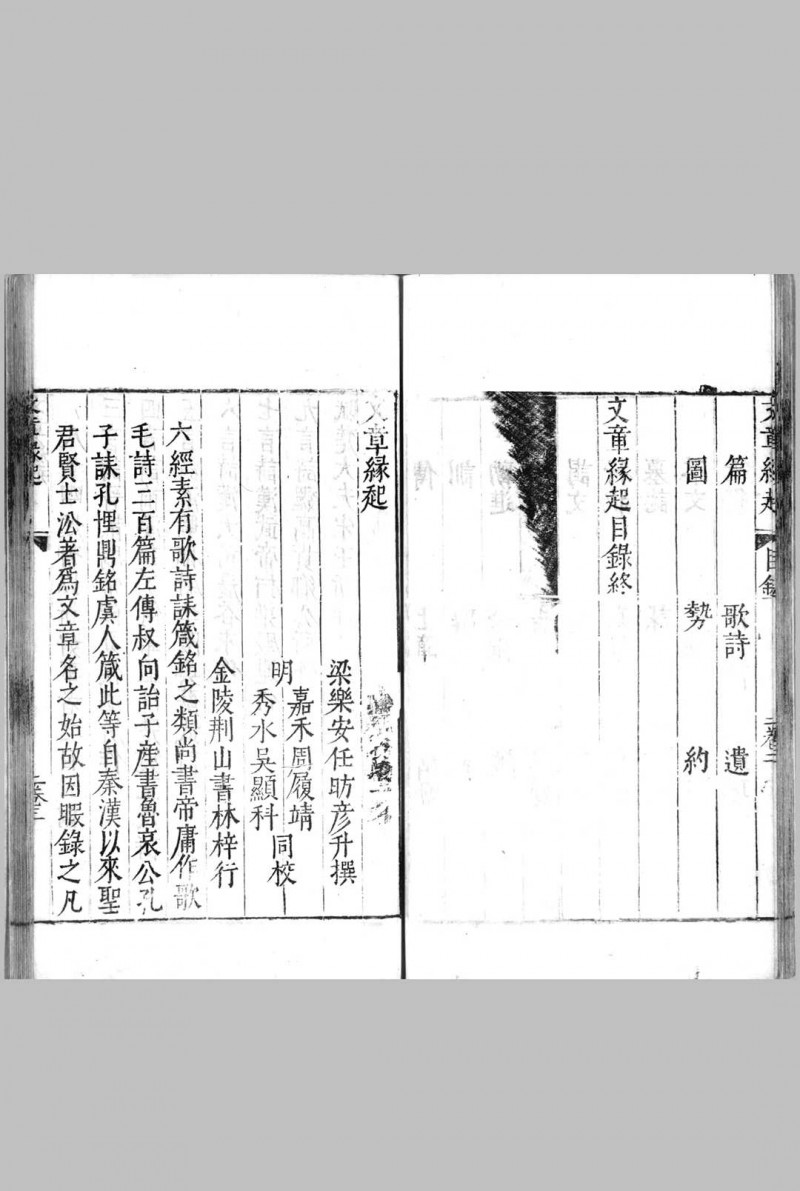 文章緣起 目錄
篇 歌詩 遺
圖 勢 約
文章緣起目錄終
文章緣起
梁樂安任昉彥升撰
明
嘉禾周履靖
秀水吳顯科
同校
金陵荆山書林梓行
六經素有歌詩誄箴銘之類尚書帝庸作歌
毛詩三百篇左傳叔向詒子產書魯哀公孔
子誄孔悝鼎銘虞人箴此等自秦漢以來聖
君賢士㳂著爲文章名之始故因暇錄之凡
文章緣起